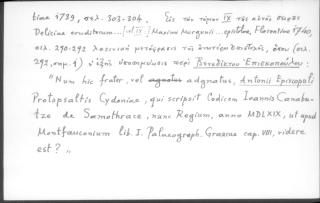 tinae 1739, σελ. 303-304. Εἰς τὸν τόμον IX τῆς αὐτῆς σειρᾶς
Deliciae eruditorum... [vol IX:] Maximi Margunii... epistolae, Florentiae 1740,
σελ. 290-292 λατινικὴ μετάφρασις τῆς ἀνωτέρω ἐπιστολῆς, ὅπου (σελ.
292, σημ. 1) ἡ ἑξῆς ὑποσημείωσις περὶ Βενεδίκτου Ἐπισκοπούλου:
"Num hic frater, vel agnatus adgnatus, Antonii Episcopuli
Protopsaltis Cydoniae, qui scripsit Codicem Ioannis Canabu-
tze de Samothrace, nunc Regium, anno MDLXIX, ut apud
Montfauconium lib. I. Palaeograph. Graecae cap. VIII, videre
est? "